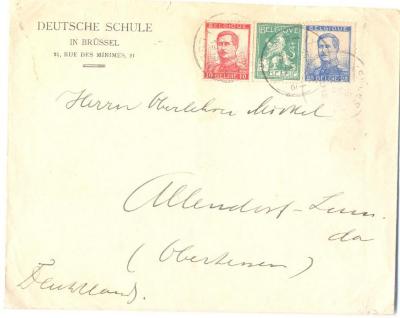 DEUTSCHE SCHULE
IN BRÜSSEL
21, RUE DES MINIMES, 21
BELGIQUE BELGIQUE BELGIQUE
10 BELGIË 10 BELGIË BELGIË
Herrn Oberlehrer
Allendorf-Lum
da
(Oberhessen)
Deutschland.